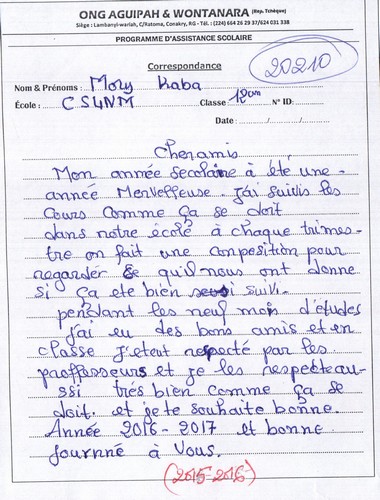 ONG AGUIPAH & WONTANARA (Rep. Tchèque)
Siège : Lambanyi-wariah, C/Ratoma, Conakry, RG - Tél. : (224) 664 26 29 37/624 031 338
PROGRAMME D'ASSISTANCE SCOLAIRE
Correspondance
20210
Nom & Prénoms : Mory Kaba
École : CSLNM Classe 12em N° ID:
Date : / /
Cher amis
Mon année secolaire à été une
année Merveilleuse. j'ai suivis les
Cours comme ça se doit
dans notre école à chaque trimes-
tre on fait une conposition pour
regarder ce qu'il nous ont donne
si ça ete bien suivi.
pendant les neuf mois d'études
j'ai eu des bons amis et en
classe j'etait respecté par les
proffesseurs et je les respecte au-
ssi trés bien comme ça se
doit. et je te souhaite bonne
Année 2016-2017 et bonne
journné à Vous.
(2015-2016)